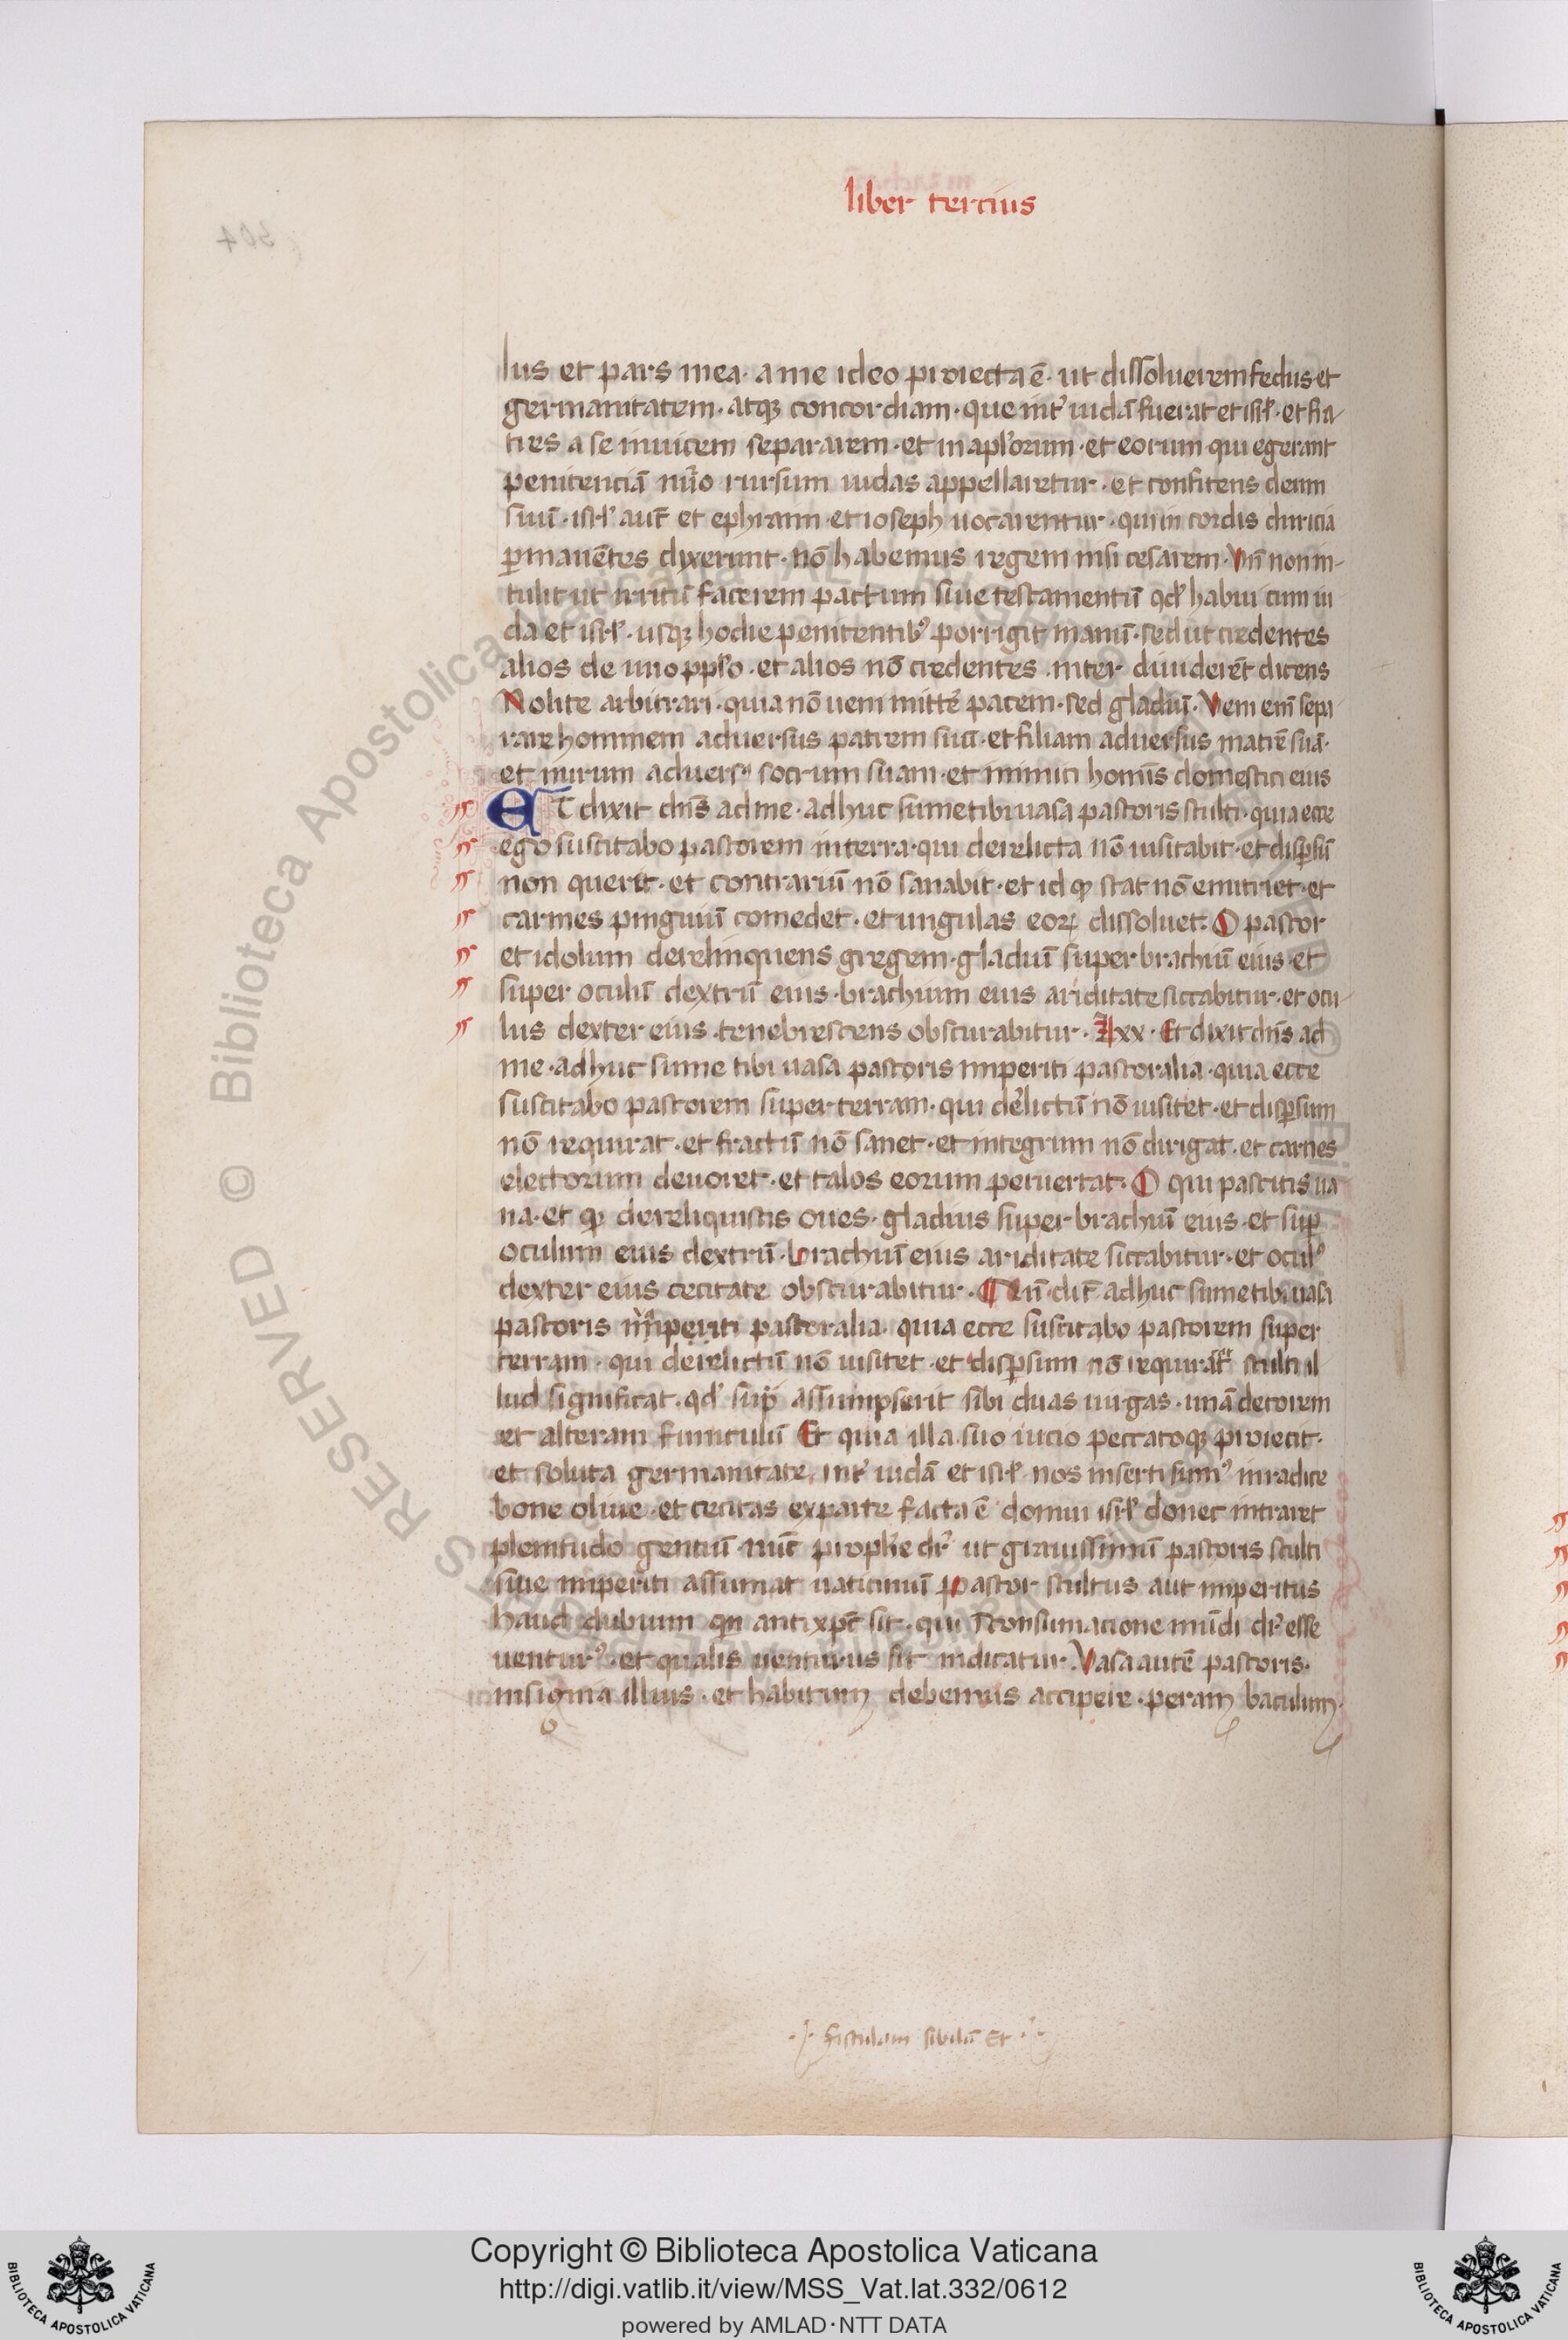 liber tercius
lus et pars mea. a me ideo proiecta ē. ut dissoluerem fedus. et
germanitatem. atq; concordiam. que int' iudā fuerat et isrl'. et fra-
tres a se inuicem separarem. et in apl'orum. et eorum qui egerant
penitenciā nūo rursum iudas appellaretur. et confitens deum
suū. isrl' aut̄ et ephraim et ioseph uocarentur. qui in cordis duricia
p̱manētes dixerunt. nō habemus regem nisi cesarem. Vn̄ non in-
tulit ut irritū facerem pactum siue testamentū qd' habui cum iu
da et isrl'. usq; hodie penitentib9 porrigit manū. sed ut credentes
alios de uno ppl'o. et alios nō credentes. inter diuiderēt dicens
Nolite arbitrari. quia nō ueni mitt'e pacem. sed gladiū. Veni enī sepa
rare hominem aduersus patrem suū. et filiam aduersus matrē suā.
et nurum aduers9 socrum suam. et inimici homīs domestici eius
ET dixit dn̄s ad me. adhuc sume tibi uasa pastoris stulti. quia ecce
ego suscitabo pastorem in terra. qui derelicta nō uisitabit. et disp̱sū
non querit. et contrariū nō sanabit. et id q̱ stat nō enutriet. et
carnes pinguiū comedet. et ungulas eoꝝ dissoluet. O pastor
et idolum derelinquens gregem. gladiū super brachiū eius. et
super oculū dextrū eius. brachium eius ariditate siccabitur. et ocu-
lus dexter eius. tenebrescens obscurabitur. lxx. Et dixit dn̄s ad
me. adhuc sume tibi uasa pastoris imperiti pastoralia. quia ecce
suscitabo pastorem super terram. qui d'elictū nō uisitet. et disp̱sum
nō requirat. et fractū nō sanet. et integrum nō dirigat. et carnes
electorum deuoret. et talos eorum peruertat. O qui pascitis ua
na. et q̱ dereliquistis oues. gladius super brachiū eius. et sup̱
oculum eius dextrū. brachiū eius ariditate siccabitur. et ocul9
dexter eius cecitate obscurabitur. ¶ dic̄ adhuc sume tibi uasa
pastoris imperiti pastoralia. quia ecce suscitabo pastorem super
terram. qui derelictū nō uisitet. et disp̱sum nō requirat stulti il
lud significat. qd' sup̱ assumpserit sibi duas uirgas. unā decorem
et alteram funiculū Et quia illa suo iucio peccatoq; proiecit.
et soluta germanitate. int' iudā et isrl'. nos inserti sum9 in radice
bone oliue. et cecitas ex parte facta ē domui isrl' donec intraret
plenitudo gentiū. nūc prophe dr' ut grauissimū pastoris stulti
siue imperiti assumat uaticiniū Pastor stultus aut imperitus
haud dubium qn antixpc̄ sit. qui ī consumacione mūdi dr' esse
uentur9. et qualis uenturus sit indicatur. Vasa autē pastoris.
insignia illius. et habitum debemus accipere. peram baculum.
fistulam sibilū Et
304
Copyright © Biblioteca Apostolica Vaticana
http://digi.vatlib.it/view/MSS_Vat.lat.332/0612
powered by AMLAD · NTT DATA
BIBLIOTECA APOSTOLICA VATICANA
BIBLIOTECA APOSTOLICA VATICANA